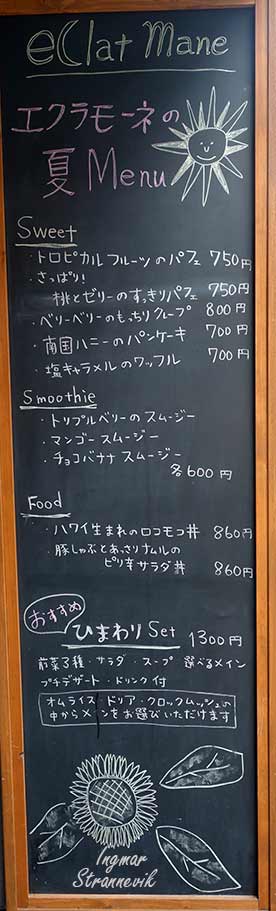 eClat Mane
エクラモーネの
夏 Menu
Sweet
・トロピカルフルーツのパフェ 750円
・さっぱり!
桃とゼリーのすっきりパフェ 750円
・ベリーベリーのもっちりクレープ 800円
・南国ハニーのパンケーキ 700円
・塩キャラメルのワッフル 700円
Smoothie
・トリプルベリーのスムージー
・マンゴースムージー
・チョコバナナスムージー
各600円
Food
・ハワイ生まれのロコモコ丼 860円
・豚しゃぶとあっさりナムルの
ピリ辛サラダ丼 860円
おすすめ
ひまわり Set 1300円
前菜3種・サラダ・スープ 選べるメイン
プチデザート・ドリンク付
オムライス・ドリア・クロックムッシュの
中からメインをお選びいただけます
Ingmar
Strannevik